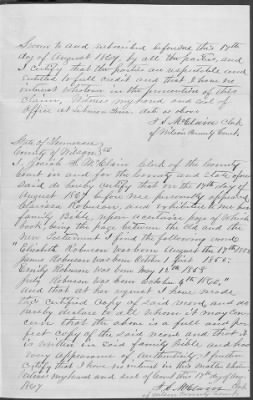 Sworn to and subscribed before me this 19th
day of August 1867, by all the parties, and
I certify that the parties are respectable and
entitled to full credit and that I have no
interest whatever in the prosecution of this
claim, Witness my hand and seal of
office at Lebanon Tenn. date as above
J. S. McClain Clk
of Wilson County Court,
State of Tennessee
County of Wilson
I, Josiah S. McClain Clerk of the County
Court in and for the County and State afore
said do hereby certify that on the 19th day of
August 1867 before me personally appeared
Robinson, and exhibited to me her
family Bible, upon a certain page of which
book, being the page between the old and the
new Testament I find the following record
Elizabeth Robinson was born August the 17th
James Robinson was born October 1st 1860
Emily Robinson was born May 12th 1863
July Robinson was born October 4th 1860,"
and that at her request I have made
this certified copy of said record and do
hereby declare to all whom it may con
cern that the above is a full and per
fect copy of the said record and that it
is written in said family Bible and has
every appearance of Authenticity. I further
certify that I have no interest in this matter
Witness my hand and seal of Court this 19th day of Aug
1867
J. S. McClain Clk
of Wilson County Court